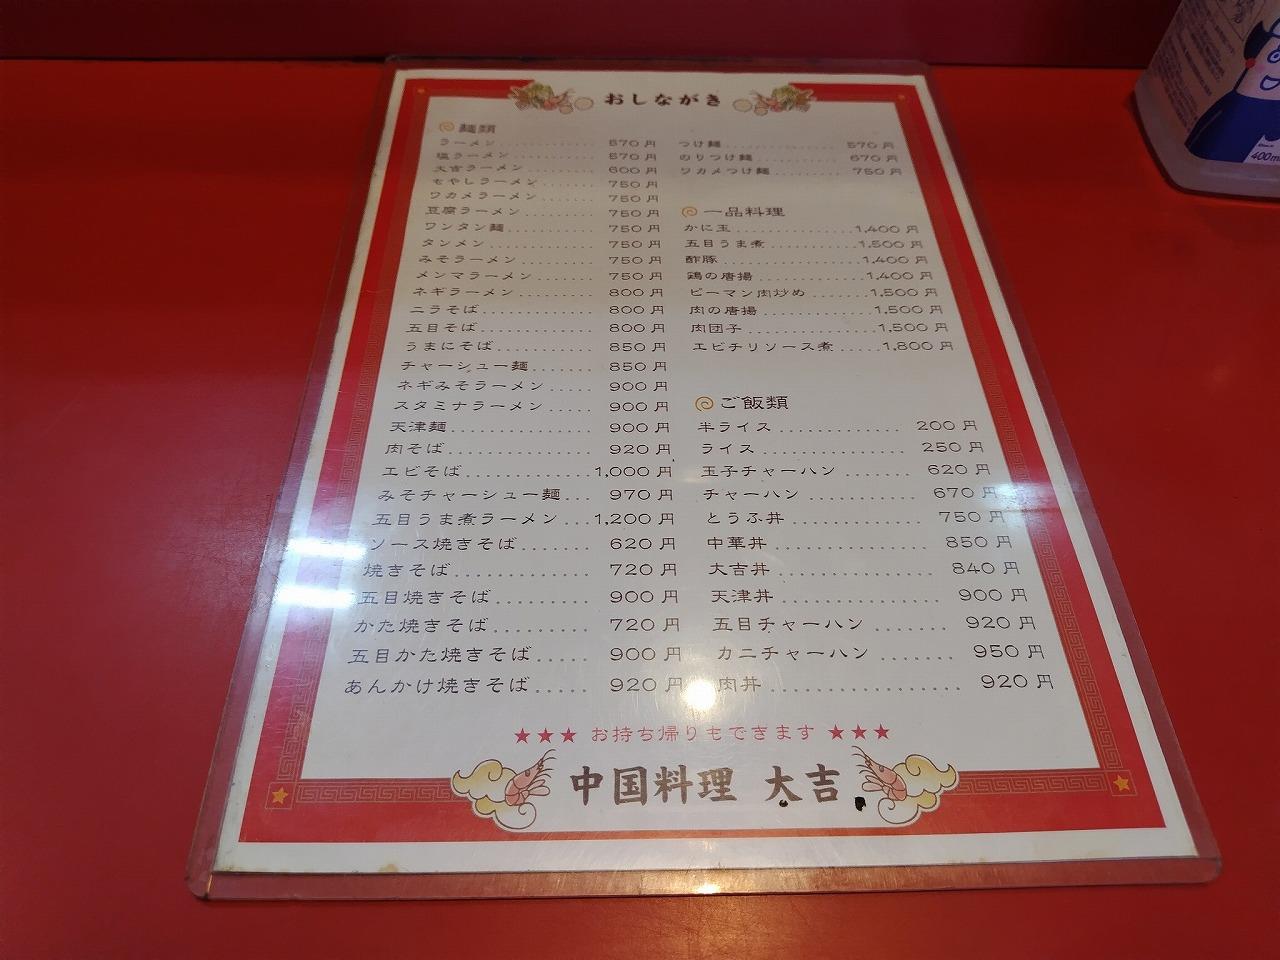 おしながき
麺類
ラーメン............570円
塩ラーメン..........570円
大吉ラーメン........600円
もやしラーメン......750円
ワカメラーメン......750円
豆腐ラーメン........750円
ワンタン麺..........750円
タンメン............750円
みそラーメン........750円
メンマラーメン......750円
ネギラーメン........800円
ニラそば............800円
五目そば............800円
うまにそば..........850円
チャーシュー麺......850円
ネギみそラーメン....900円
スタミナラーメン....900円
天津麺..............900円
肉そば..............920円
エビそば............1,000円
みそチャーシュー麺...970円
五目うま煮ラーメン...1,200円
ソース焼きそば......620円
焼きそば............720円
五目焼きそば........900円
かた焼きそば........720円
五目かた焼きそば.....900円
あんかけ焼きそば.....920円
つけ麺..............570円
のりつけ麺..........670円
ワカメつけ麺........750円
一品料理
かに玉..............1,400円
五目うま煮..........1,500円
酢豚................1,400円
鶏の唐揚............1,400円
ピーマン肉炒め......1,500円
肉の唐揚............1,500円
肉団子..............1,500円
エビチリソース煮.....1,800円
ご飯類
半ライス............200円
ライス..............250円
玉子チャーハン......620円
チャーハン..........670円
とうふ丼............750円
中華丼..............850円
大吉丼..............840円
天津丼..............900円
五目チャーハン......920円
カニチャーハン......950円
肉丼................920円
★★★ お持ち帰りもできます ★★★
中国料理 大吉
400ml